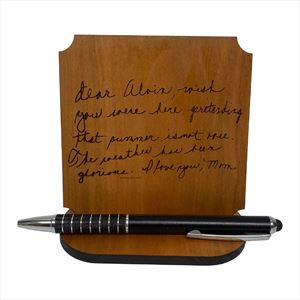 Dear Alvin, wish
you were here pretending
that summer is not over.
The weather has been
glorious. I love you, Mom